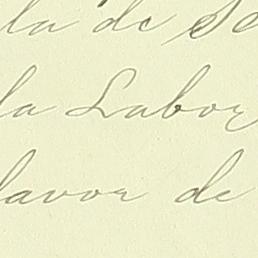 la de
la Labor
favor de